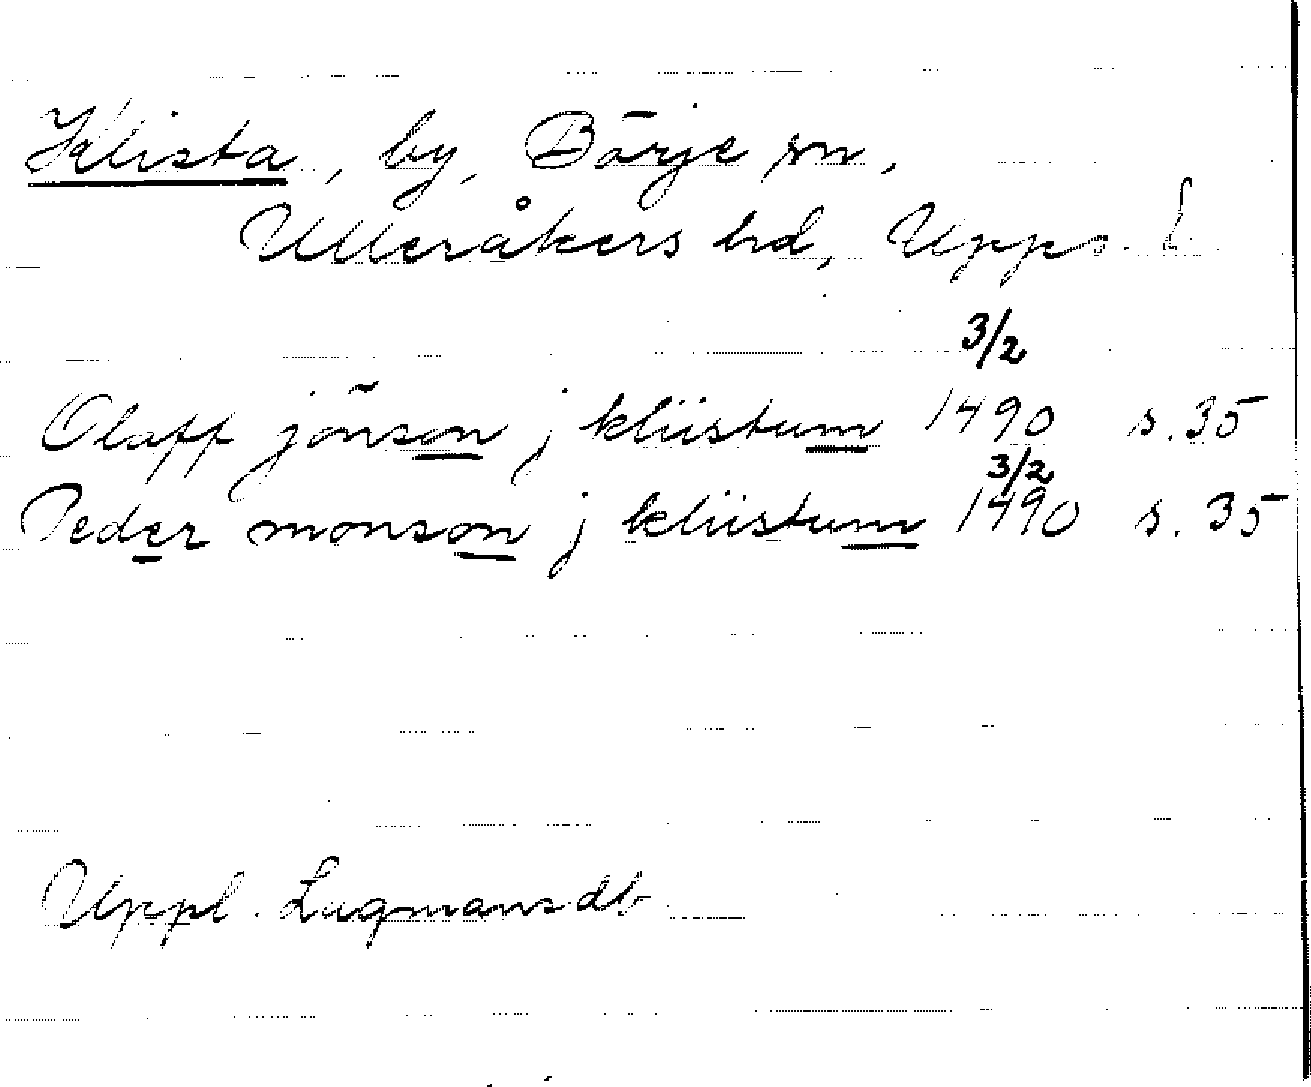 Klista, by, Börje sn,
Ulleråkers hd, Upps. l.
3/2
Olaff jönson j kliistum 1490 s. 35
3/2
Peder monson j kliistum 1490 s. 35
Uppl. Lagmansdb